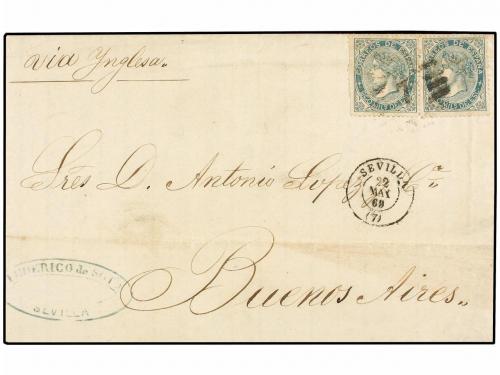 via Ynglesa
CORREOS DE ESPAÑA
CORREOS DE ESPAÑA
Sres D. Antonio Lopez y Cª
SEVILLA
22
MAY
69
(7)
Buenos Aires.
FEDERICO de
SEVILLA